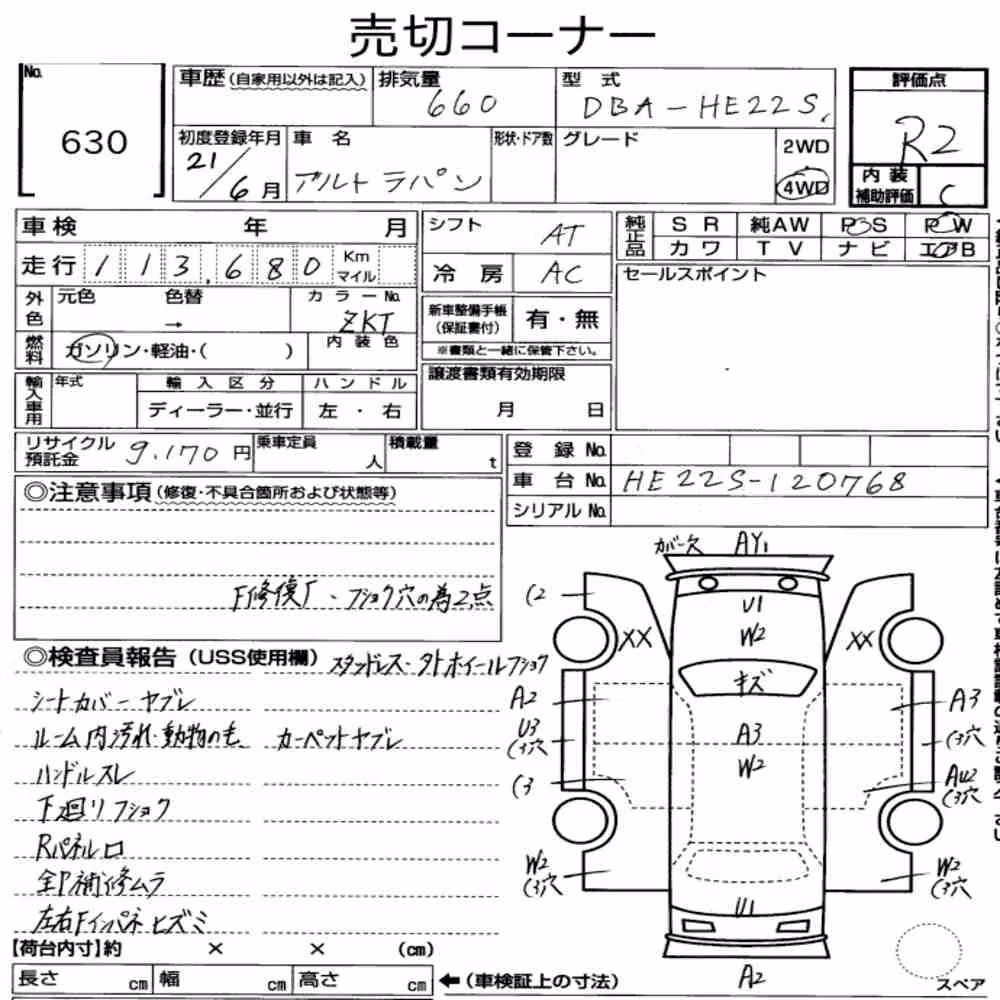 売切コーナー
No. 630
車歴 (自家用以外は記入)
排気量 660
型式 DBA-HE22S
評価点 R2
内装補助評価 C
初度登録年月 21/6月
車名 アルトラパン
形状・ドア数
グレード
2WD
4WD
車検 年 月
走行 113,680 Km マイル
外色 元色 色替 →
カラーNo. ZKT
燃料 ガソリン・軽油・( )
内装色
輸入車用 年式 輸入区分 ハンドル
ディーラー・並行 左・右
シフト AT
冷房 AC
新車整備手帳(保証書付) 有・無
※書類と一緒に保管下さい。
譲渡書類有効期限
月 日
純正品 SR 純AW PS PW
カワ TV ナビ エアB
セールスポイント
リサイクル預託金 9,170円
乗車定員 人
積載量 t
登録No.
車台No. HE22S-120768
シリアルNo.
◎注意事項(修復・不具合箇所および状態等)
F修復/・フショク穴の為2点
◎検査員報告(USS使用欄) スタッドレス・タトホイールフショク
シートカバーヤブレ
ルーム内汚れ・動物の毛 カーペットヤブレ
ハンドルスレ
下廻リフショク
Rパネルロ
全P補修ムラ
左右Fインパネヒズミ
カバー欠 AY1
C2
U1
XX W2 XX
キズ
A2 A3
U3
C3穴 A3 C3穴
W2
C3 AU2
C3穴
W2 W2
C3穴 C3穴
U1
A2
スペア
【荷台内寸】約 × × (cm)
長さ cm 幅 cm 高さ cm ←(車検証上の寸法)